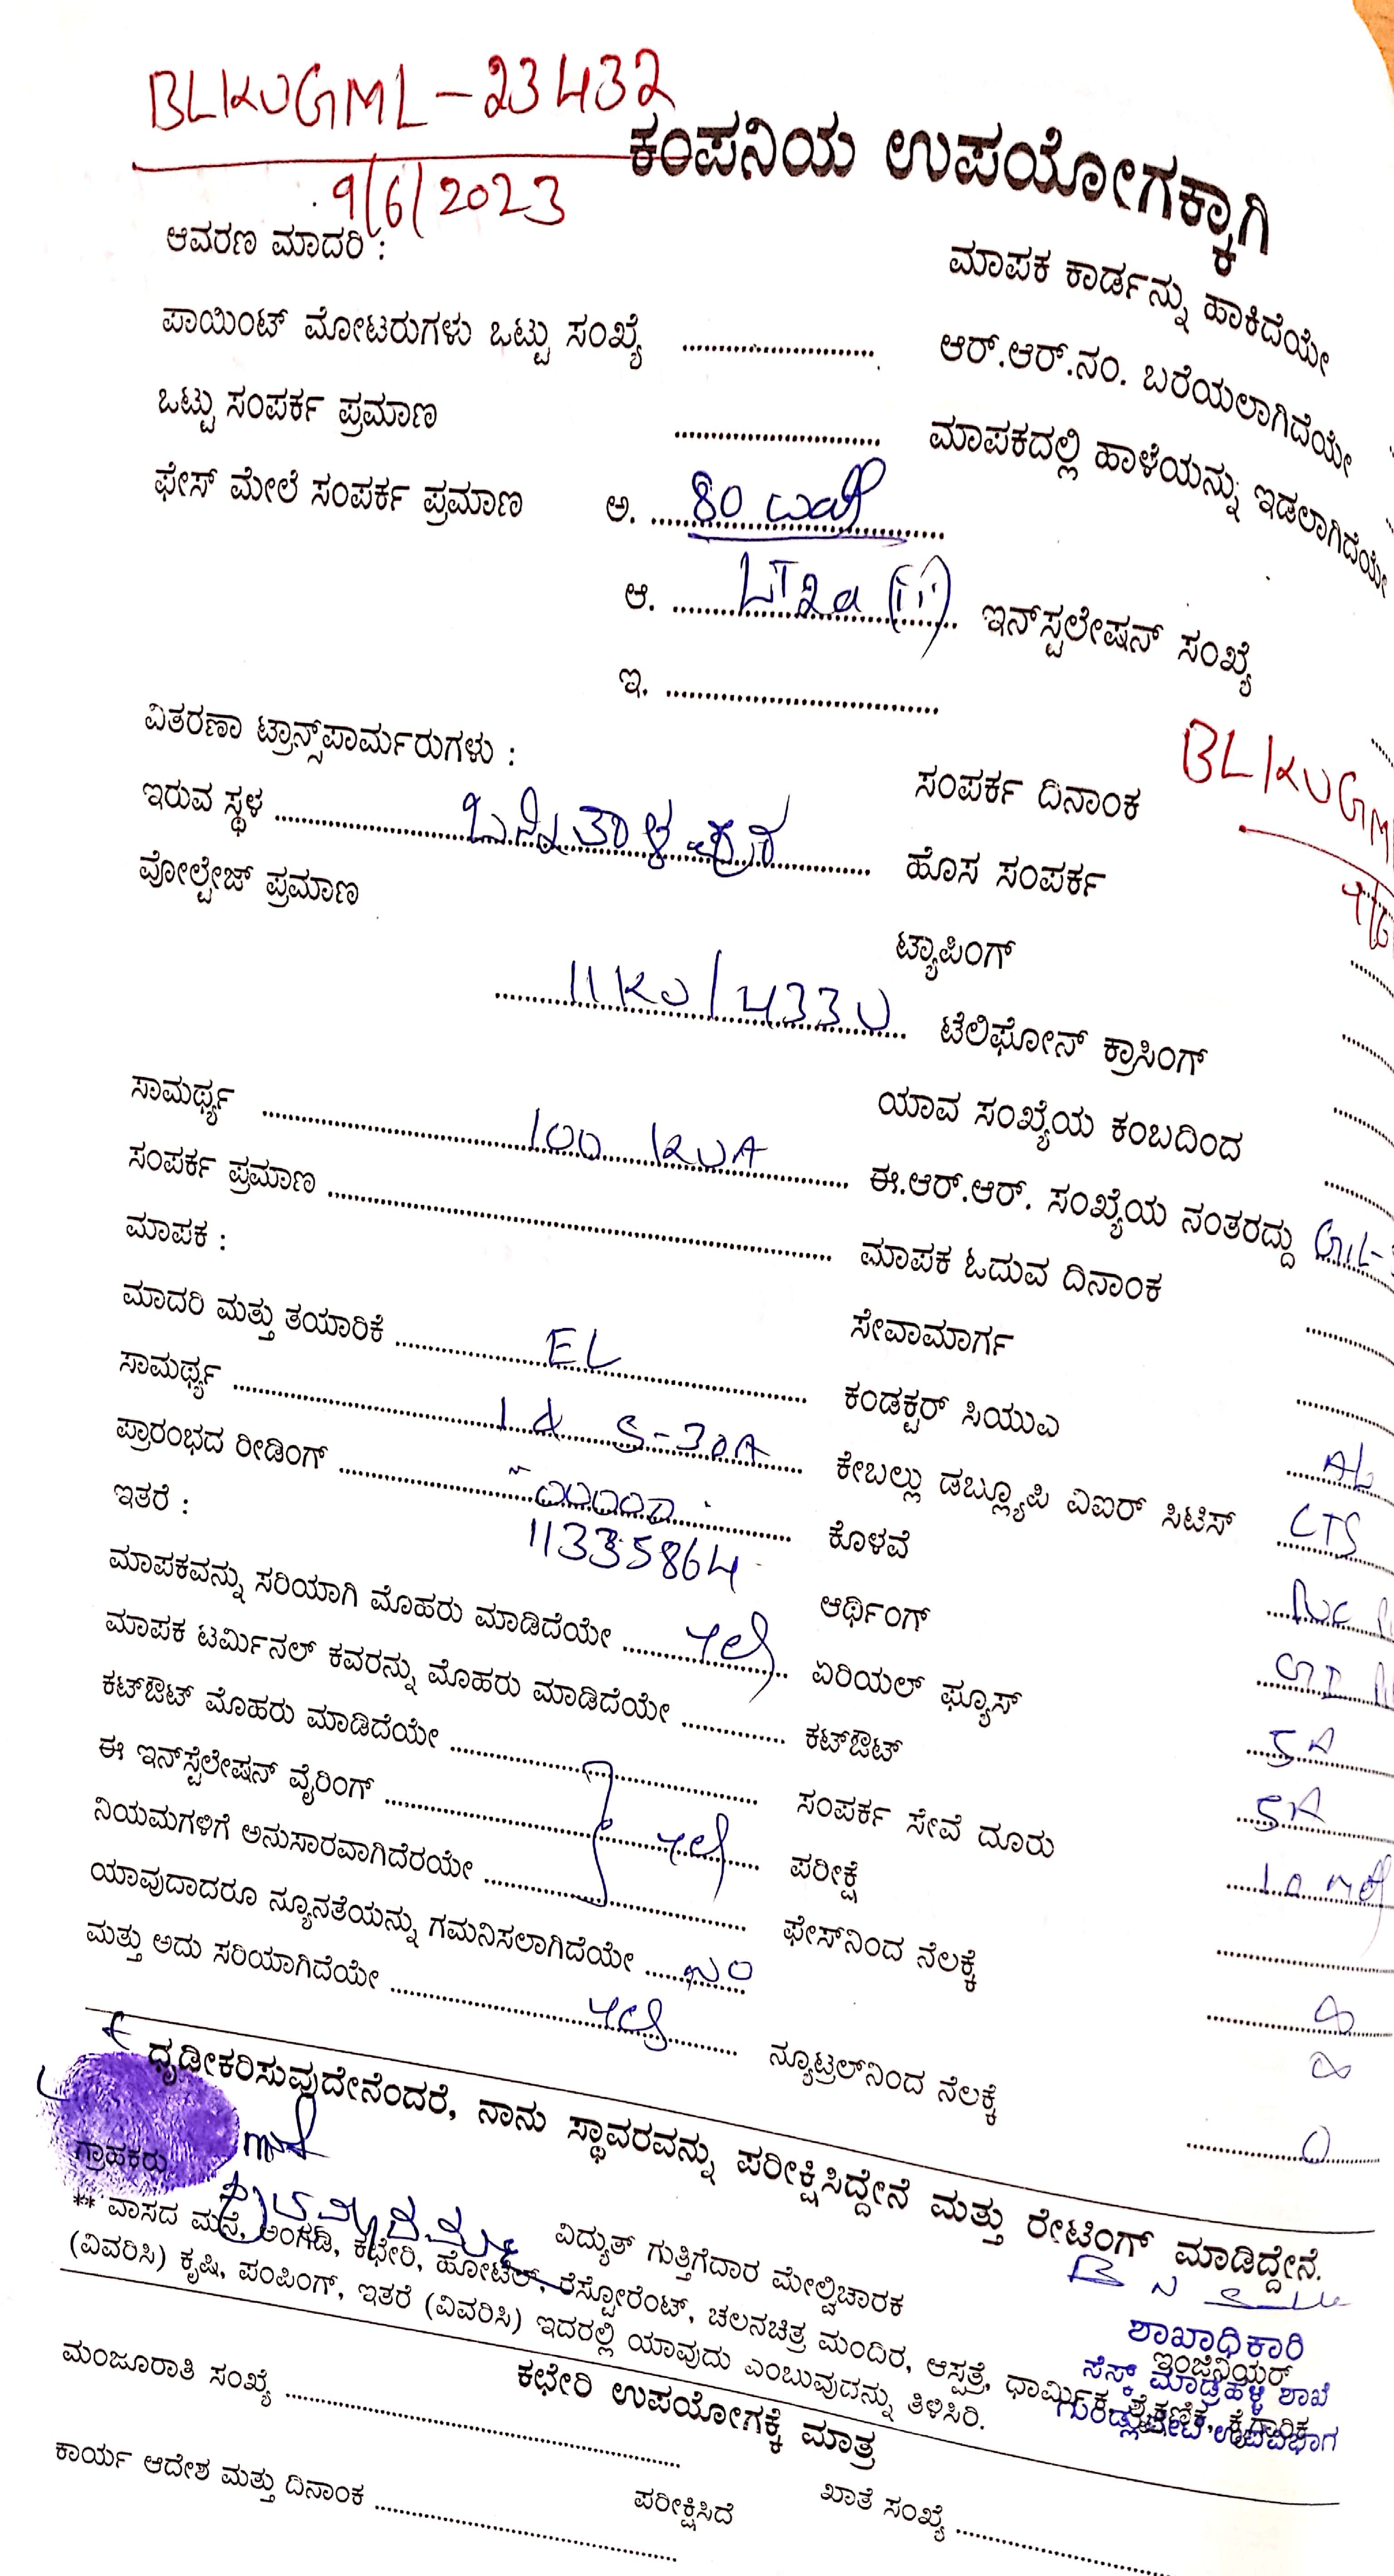 BLKUGML-23432
9/6/2023
ಕಂಪನಿಯ ಉಪಯೋಗಕ್ಕಾಗಿ
ಆವರಣ ಮಾದರಿ :
ಮಾಪಕ ಕಾರ್ಡನ್ನು ಹಾಕಿದೆಯೇ
ಪಾಯಿಂಟ್ ಮೋಟರುಗಳು ಒಟ್ಟು ಸಂಖ್ಯೆ ........................
ಆರ್.ಆರ್.ನಂ. ಬರೆಯಲಾಗಿದೆಯೇ
ಒಟ್ಟು ಸಂಪರ್ಕ ಪ್ರಮಾಣ ........................
ಮಾಪಕದಲ್ಲಿ ಹಾಳೆಯನ್ನು ಇಡಲಾಗಿದೆಯೇ
ಫೇಸ್ ಮೇಲೆ ಸಂಪರ್ಕ ಪ್ರಮಾಣ ಅ. 80
ಆ. LT2a (ii) ಇನ್‌ಸ್ಟಲೇಷನ್ ಸಂಖ್ಯೆ
ಇ. ........................
ವಿತರಣಾ ಟ್ರಾನ್ಸ್‌ಪಾರ್ಮರುಗಳು :
ಸಂಪರ್ಕ ದಿನಾಂಕ BLKUGM
ಇರುವ ಸ್ಥಳ ........................
ಹೊಸ ಸಂಪರ್ಕ
ವೋಲ್ಟೇಜ್ ಪ್ರಮಾಣ
ಟ್ಯಾಪಿಂಗ್
11KV/433V ಟೆಲಿಫೋನ್ ಕ್ರಾಸಿಂಗ್
ಸಾಮರ್ಥ್ಯ 100 KVA
ಯಾವ ಸಂಖ್ಯೆಯ ಕಂಬದಿಂದ
ಸಂಪರ್ಕ ಪ್ರಮಾಣ ........................
ಈ.ಆರ್.ಆರ್. ಸಂಖ್ಯೆಯ ನಂತರದ್ದು
ಮಾಪಕ :
ಮಾಪಕ ಓದುವ ದಿನಾಂಕ
ಮಾದರಿ ಮತ್ತು ತಯಾರಿಕೆ EL
ಸೇವಾಮಾರ್ಗ
ಸಾಮರ್ಥ್ಯ 5-30A
ಕಂಡಕ್ಟರ್ ಸಿಯುಎ AL
ಪ್ರಾರಂಭದ ರೀಡಿಂಗ್ 00000
ಕೇಬಲ್ಲು ಡಬ್ಲ್ಯೂಪಿ ಎಐರ್ ಸಿಟಿಸ್ CTS
ಇತರೆ : 11335864
ಕೊಳವೆ
ಮಾಪಕವನ್ನು ಸರಿಯಾಗಿ ಮೊಹರು ಮಾಡಿದೆಯೇ yes
ಆರ್ಥಿಂಗ್
ಮಾಪಕ ಟರ್ಮಿನಲ್ ಕವರನ್ನು ಮೊಹರು ಮಾಡಿದೆಯೇ ............
ಏರಿಯಲ್ ಫ್ಯೂಸ್ 5A
ಕಟ್‌ಔಟ್ ಮೊಹರು ಮಾಡಿದೆಯೇ ........................
ಕಟ್‌ಔಟ್ 5A
ಈ ಇನ್‌ಸ್ಟೆಲೇಷನ್ ವೈರಿಂಗ್ yes
ಸಂಪರ್ಕ ಸೇವೆ ದೂರು 10
ನಿಯಮಗಳಿಗೆ ಅನುಸಾರವಾಗಿದೆರಯೇ ........................
ಪರೀಕ್ಷೆ
ಯಾವುದಾದರೂ ನ್ಯೂನತೆಯನ್ನು ಗಮನಿಸಲಾಗಿದೆಯೇ no
ಫೇಸ್‌ನಿಂದ ನೆಲಕ್ಕೆ ∞
∞
ಮತ್ತು ಅದು ಸರಿಯಾಗಿದೆಯೇ yes
ನ್ಯೂಟ್ರಲ್‌ನಿಂದ ನೆಲಕ್ಕೆ 0
ಧೃಡೀಕರಿಸುವುದೇನೆಂದರೆ, ನಾನು ಸ್ಥಾವರವನ್ನು ಪರೀಕ್ಷಿಸಿದ್ದೇನೆ ಮತ್ತು ರೇಟಿಂಗ್ ಮಾಡಿದ್ದೇನೆ.
ಗ್ರಾಹಕರು
ವಿದ್ಯುತ್ ಗುತ್ತಿಗೆದಾರ ಮೇಲ್ವಿಚಾರಕ
ಶಾಖಾಧಿಕಾರಿ
ಇಂಜಿನಿಯರ್
ಸೆಸ್ಕ್ ಮಾಡ್ರಹಳ್ಳಿ ಶಾಖೆ
ಗುಂಡ್ಲುಪೇಟೆ ಉಪವಿಭಾಗ
** ವಾಸದ ಮನೆ, ಅಂಗಡಿ, ಕಛೇರಿ, ಹೋಟೆಲ್, ರೆಸ್ಟೋರೆಂಟ್, ಚಲನಚಿತ್ರ ಮಂದಿರ, ಆಸ್ಪತ್ರೆ, ಧಾರ್ಮಿಕ, ಶೈಕ್ಷಣಿಕ, ಕೈಗಾರಿಕ
(ವಿವರಿಸಿ) ಕೃಷಿ, ಪಂಪಿಂಗ್, ಇತರೆ (ವಿವರಿಸಿ) ಇದರಲ್ಲಿ ಯಾವುದು ಎಂಬುವುದನ್ನು ತಿಳಿಸಿರಿ.
ಕಛೇರಿ ಉಪಯೋಗಕ್ಕೆ ಮಾತ್ರ
ಮಂಜೂರಾತಿ ಸಂಖ್ಯೆ ........................
ಖಾತೆ ಸಂಖ್ಯೆ ........................
ಕಾರ್ಯ ಆದೇಶ ಮತ್ತು ದಿನಾಂಕ ........................
ಪರೀಕ್ಷಿಸಿದೆ